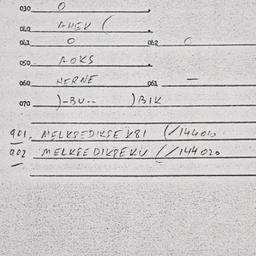 030 O
040 AHEK (
041 O 042 C
050 AOKS
060 HERNE 061 —
070 )-BU-- )BIK
901. MELKPEDIKPEKBI (/144010
902 MELKPEDIKPEKU (/144020